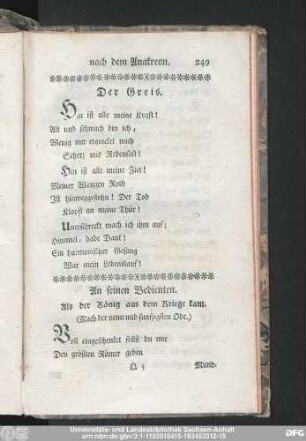 nach dem Anakreon. 249
Der Greis.
Hin ist alle meine Kraft!
Alt und schwach bin ich,
Wenig nur erquicket mich
Scherz und Rebensaft!
Hin ist alle meine Zier!
Meiner Wangen Roth
Ist hinweggeflohn! Der Tod
Klopft an meine Thür!
Unerschreckt mach ich ihm auf;
Himmel, habe Dank!
Ein harmonischer Gesang
War mein Lebenslauf!
An seinen Bedienten.
Als der König aus dem Kriege kam.
(Nach der neun und funfzigsten Ode.)
Voll eingeschenkt sollst du mir
Den größten Römer geben
Q 5 Mund-
Universitäts- und Landesbibliothek Sachsen-Anhalt
urn:nbn:de:gbv:3:1-1192015415-193453312-15
DFG